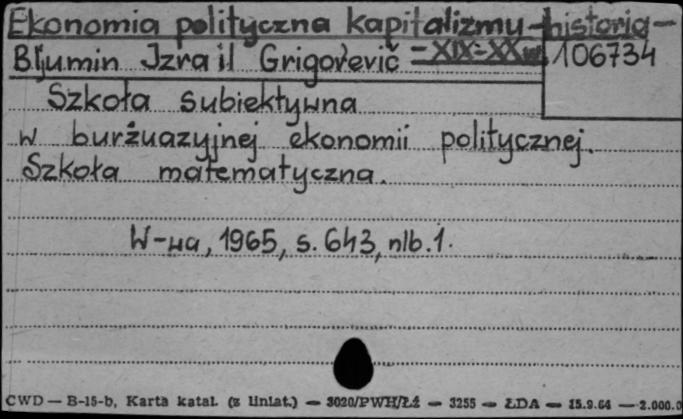 Ekonomia polityczna kapitalizmu - historia -
Bljumin Izrail Grigor'evič - XIX-XX w. 106734
Szkoła subiektywna
w burżuazyjnej ekonomii politycznej.
Szkoła matematyczna.
W-wa, 1965, s. 643, nlb. 1.
CWD — B-15-b, Karta katal. (z liniat.) — 3020/PWH/Łź — 3255 — ŁDA — 15.9.64 — 2.000.0